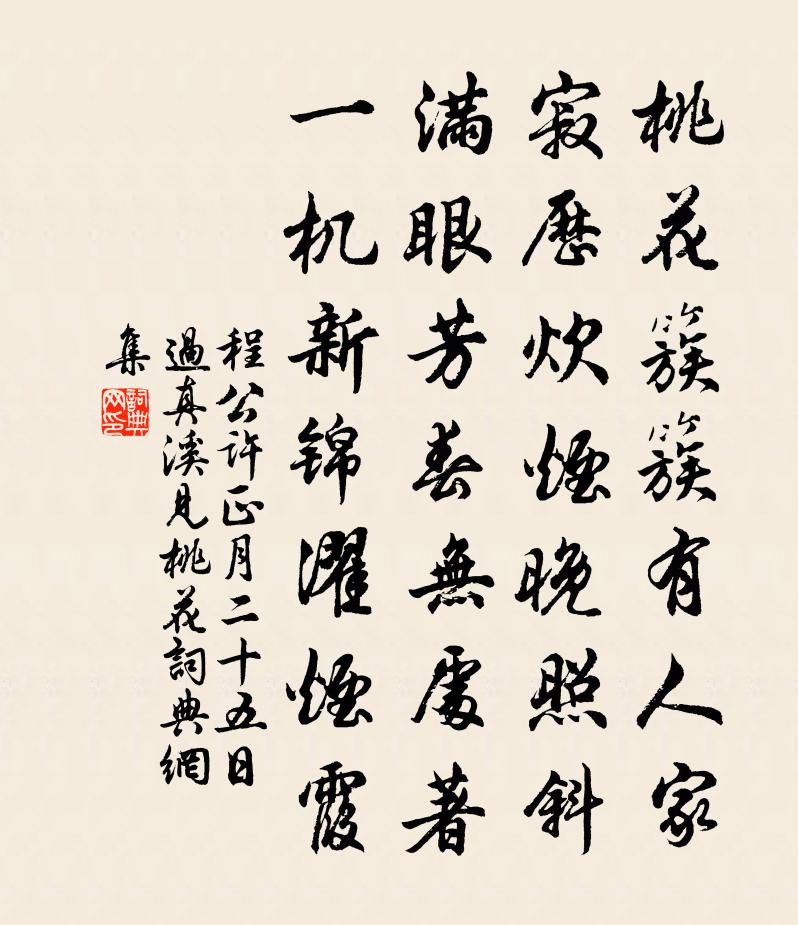 桃花簇簇有人家
寂歷炊煙晚照斜
滿眼芳春無處著
一机新錦濯煙霞
程公許正月二十五日
過真溪見桃花詞典網
集
詞典
网印